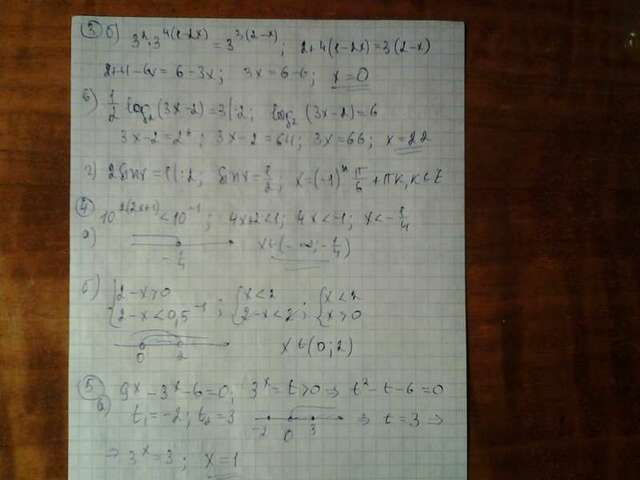 ③ б) 3²·3^4(1-2x) = 3^3(2-x); 2+4(1-2x)=3(2-x)
2+4-8x = 6-3x; 3x=6-6; x=0
в) 1/2 log₂(3x-2)=3|·2; log₂(3x-2)=6
3x-2=2⁶; 3x-2=64; 3x=66; x=22
г) 2sinx=1|:2; sinx=1/2; x=(-1)ⁿ π/6 + πk, k∈Z
④ 10^2(2x+1) < 10^-1; 4x+2<1; 4x<-1; x<-1/4
а) -1/4 x∈(-∞;-1/4)
б) {2-x>0 {x<2 {x<2
{2-x<0,5^-1; {2-x<2; {x>0
0 2 x∈(0;2)
⑤ 9^x-3^x-6=0; 3^x=t>0 ⇒ t²-t-6=0
в) t₁=-2; t₂=3 -2 0 3 ⇒ t=3 ⇒
⇒ 3^x=3; x=1